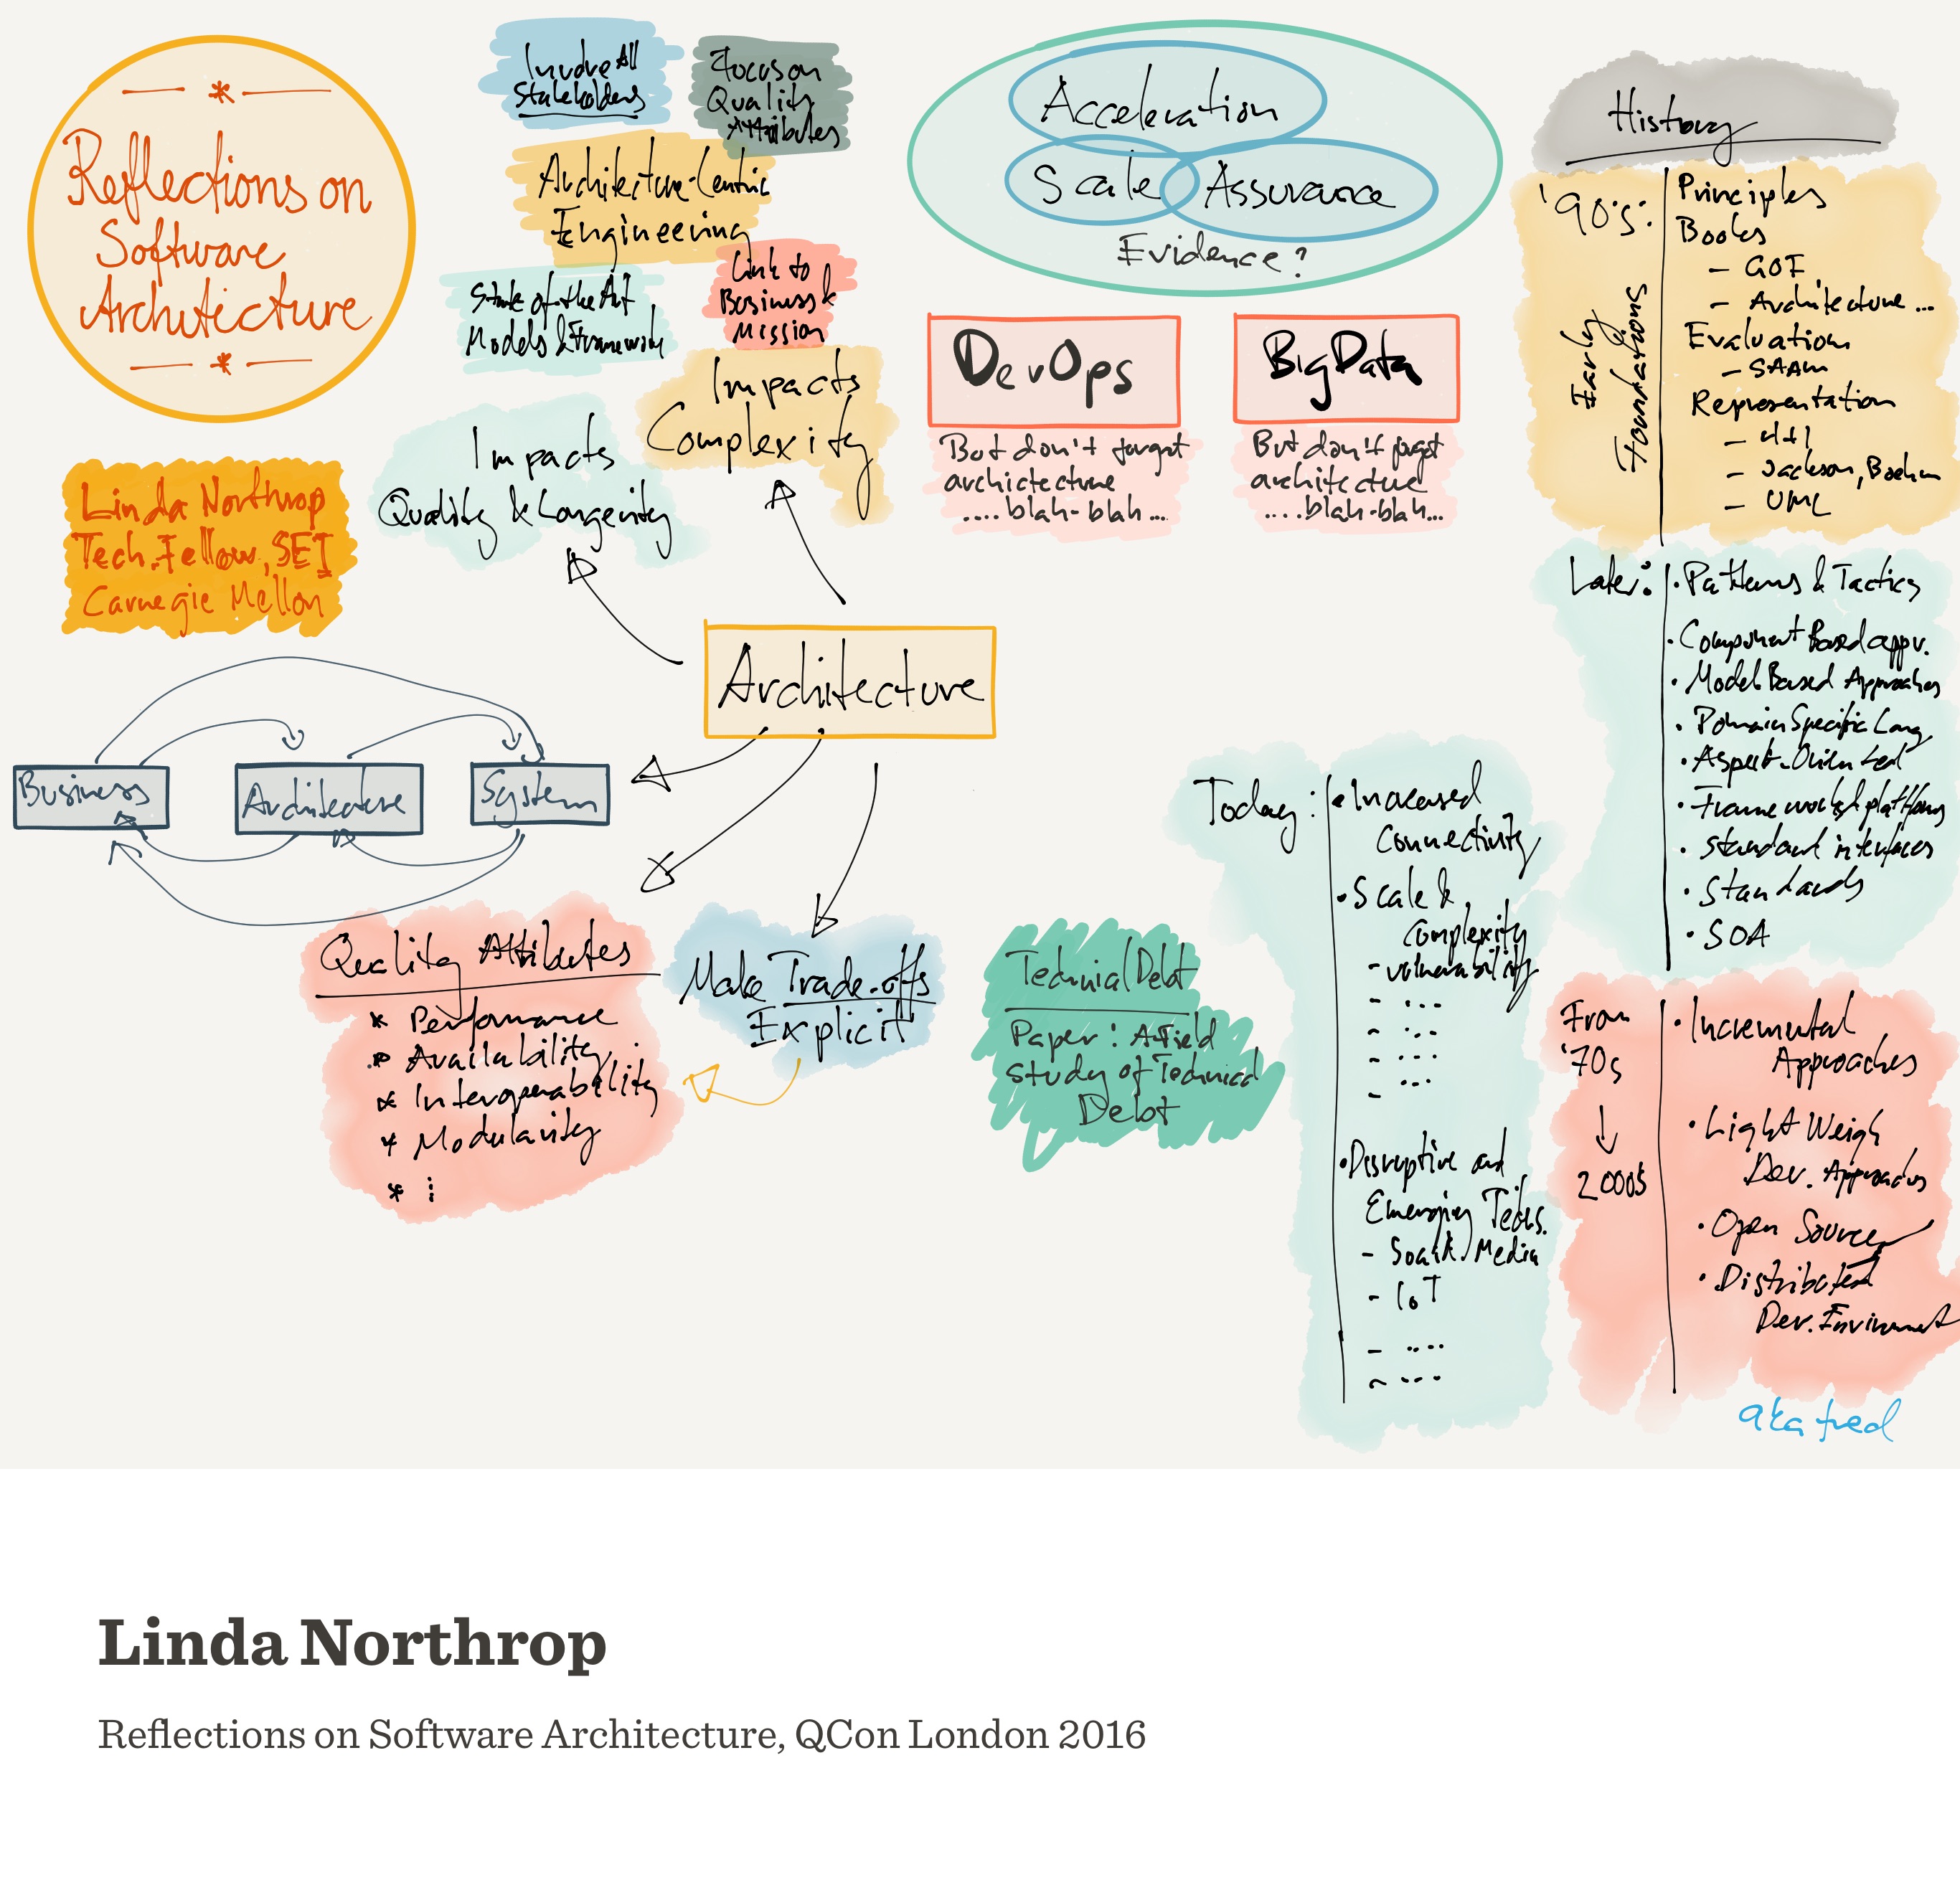 Reflections on
Software
Architecture
Linda Northrop
Tech. Fellow, SEI
Carnegie Mellon
Involve All
Stakeholders
Focus on
Quality
Attributes
Architecture-Centric
Engineering
State of the Art
Models & Framework
Link to
Business &
Mission
Impacts
Complexity
Impacts
Quality & Longevity
Architecture
Business
Architecture
System
Quality Attributes
* Performance
* Availability
* Interoperability
* Modularity
* ⋮
Make Trade-offs
Explicit
Acceleration
Scale
Assurance
Evidence?
DevOps
But don't forget
architecture
....blah-blah...
BigData
But don't forget
architecture
....blah-blah...
Technical Debt
Paper: A Field
Study of Technical
Debt
History
'90's:
Early
Foundations
Principles
Books
- GOF
- Architecture ...
Evaluation
- SAAM
Representation
- 4+1
- Jackson, Boehm
- UML
Later:
• Patterns & Tactics
• Component Based appr.
• Model Based Approaches
• Domain Specific Lang
• Aspect-Oriented
• Standard interfaces
• Standards
• SOA
From
'70s
↓
2000s
• Incremental
Approaches
• Light Weigh
Dev. Approaches
• Open Source
• Distributed
Dev. Envirnment
Today:
• Increased
Connectivity
• Scale &
Complexity
- vulnerability
- ...
- ...
- ....
- ...
-
• Disruptive and
Emerging Techs.
- Social Media
- IoT
- ....
- ...
aka fred
Linda Northrop
Reflections on Software Architecture, QCon London 2016